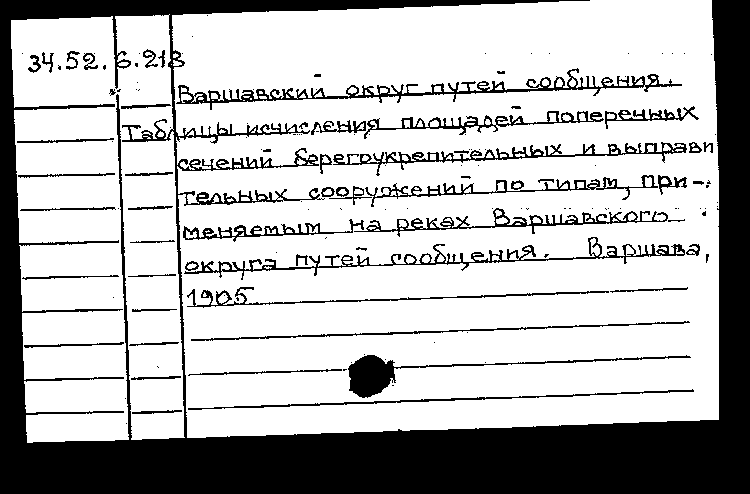 34.52.6.213
Варшавский округ путей сообщения.
Таблицы исчисления площадей поперечных
сечений берегоукрепительных и выправи
тельных сооружений по типам, при-
меняемым на реках Варшавского
округа путей сообщения. Варшава,
1905